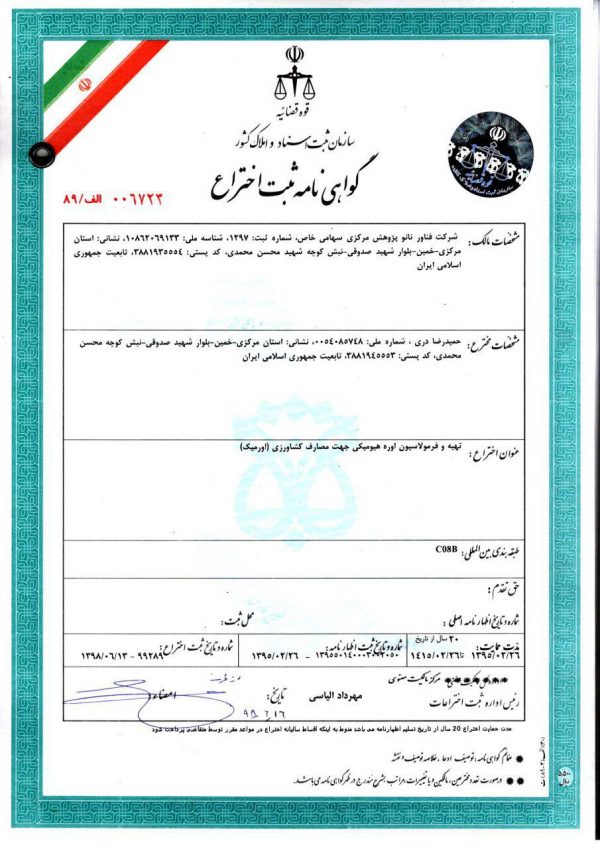 قوه قضائیه
سازمان ثبت اسناد و املاک کشور
گواهی نامه ثبت اختراع
۸۹/الف ۰۰۶۷۲۳
مشخصات مالک: شرکت فناور نانو پژوهش مرکزی سهامی خاص، شماره ثبت: ۱۲۹۷، شناسه ملی: ۱۰۸۶۲۰۶۹۱۳۳، نشانی: استان
مرکزی-خمین-بلوار شهید صدوقی-نبش کوچه شهید محسن محمدی، کد پستی: ۳۸۸۱۹۳۵۵۵۴، تابعیت جمهوری
اسلامی ایران
مشخصات مخترع: حمیدرضا دری ، شماره ملی: ۰۰۵۴۰۸۵۷۴۸، نشانی: استان مرکزی-خمین-بلوار شهید صدوقی-نبش کوچه محسن
محمدی، کد پستی: ۳۸۸۱۹۴۵۵۵۳، تابعیت جمهوری اسلامی ایران
عنوان اختراع: تهیه و فرمولاسیون اوره هیومیکی جهت مصارف کشاورزی (اورمیک)
طبقه بندی بین المللی: C08B
حق تقدم:
شماره و تاریخ اظهارنامه اصلی: محل ثبت:
مدت حمایت: ۲۰ سال از تاریخ شماره و تاریخ ثبت اظهارنامه: شماره و تاریخ ثبت اختراع:
۱۳۹۵/۰۲/۲۶ تا ۱۴۱۵/۰۲/۲۶ ۱۳۹۵/۰۲/۲۶ ۹۹۲۸۹ - ۱۳۹۸/۰۶/۱۳
مرکز مالکیت معنوی
رئیس اداره ثبت اختراعات مهرداد الیاسی تاریخ: امضاء:
مدت حمایت اختراع 20 سال از تاریخ تسلیم اظهارنامه می باشد منوط به اینکه اقساط سالیانه اختراع در مواعد مقرر توسط متقاضی پرداخت شود
ضمائم گواهی نامه: توصیف، ادعا، خلاصه توصیف و نقشه
درصورت تعدد مخترعین، مالکین و یا تغییرات، مراتب بشرح مندرج در ظهر گواهی نامه می باشد.
۵۵۰ ریال